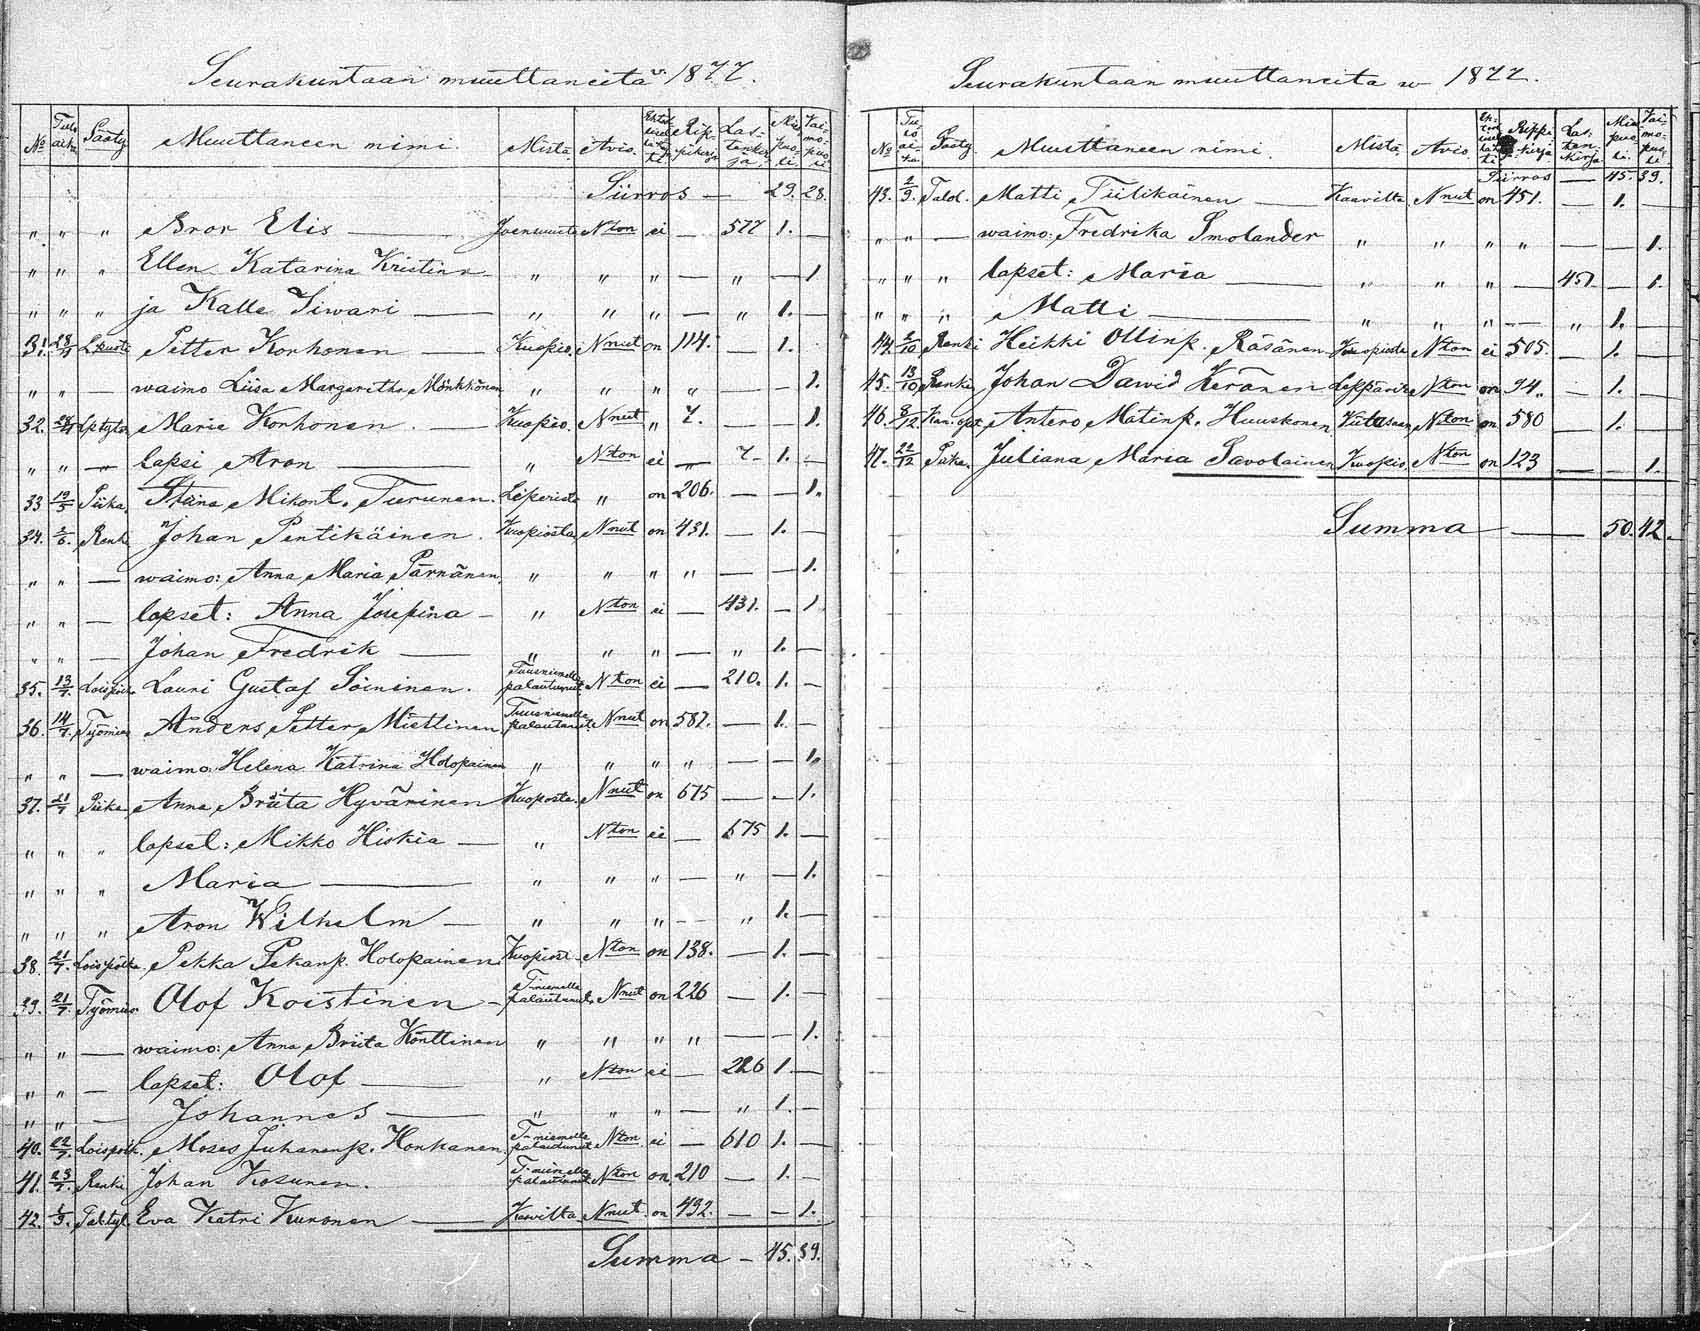 Seurakuntaan muuttaneita v. 1877.
No Tulo aika Sääty Muuttaneen nimi. Mistä. Avio. Rippikirja Lastenkirja Miespuoli Vaimopuoli
Siirros — 29. 28.
" " " Bror Elis — Joensuusta Nton ei — 577 1. —
" " " Ellen Katarina Kristina " " " — " — 1
" " " ja Kalle Siwari — " " " — " 1. —
31. Petter Korhonen — Kuopio. Nnut on 114. — 1. —
" " — waimo Liisa Margeretha Mönkkönen " " " " — — 1.
32. Maria Korhonen. — Kuopio. Nnut " 7. — — 1.
" " — lapsi Aron — " Nton ei — 7. 1. —
33 19/5 Piika. Stiina Mikont. Turunen. Liperistä " on 206. — — 1.
34. 2/6. Renki Johan Pentikäinen. Kuopiosta Nnut on 431. — 1. —
" " — waimo: Anna Maria Pärnänen. " " " " — — 1.
" " — lapset: Anna Josepina — " Nton ei — 431. — 1
" " — Johan Fredrik — " " " — " 1. —
35. 13/7. Lauri Gustaf Soininen. Tuusniemelle palautunut Nton ei — 210. 1. —
36. 14/7. Työmies Anders Petter Miettinen Tuusniemelle palautunut. Nnut on 587. — 1. —
" " — waimo: Helena Katrina Holopainen " " " " — — 1.
37. 21/7 Piika Anna Briita Hyvärinen Kuopiosta. Nnut on 675 — — 1.
" " " lapset: Mikko Hiskia — " Nton ei — 675 1. —
" " " Maria — " " " — " — 1.
" " " Aron Wilhelm — " " " — " 1. —
38. 21/7. Pekka Pekanp. Holopainen. Kuopiost. Nton on 138. — 1. —
39. 21/7. Työmies Olof Koistinen — T-niemelle palautunut. Nnut on 226 — 1. —
" " — waimo: Anna Briita Konttinen " " " " — — 1.
" " — lapset: Olof — " Nton ei — 226 1. —
" " — Johannes — " " " — " 1. —
40. 22/7. Loispoik. Moses Juhananp. Honkanen. T-niemelle palautunut Nton ei — 610 1. —
41. 23/7. Renki Johan Kosunen. T-niemelle palautunut Nton on 210 — 1. —
42. 1/9. Tal.tyt. Eva Katri Kuronen — Kaavilta Nnut. on 492. — — 1.
Summa — 45. 39.
Seurakuntaan muuttaneita w 1877.
No Tuloaika Sääty. Muuttaneen nimi. Mistä. Avio. Rippikirja Lastenkirja Miespuoli. Vaimopuoli
Siirros — 45. 39.
43. 2/9. Talol. Matti Tiilikainen — Kaavilta Nnut on 451. — 1. —
" " — waimo: Fredrika Smolander " " " " — — 1.
" " " lapset: Maria — " " " — 451 — 1.
" " " Matti — " " " — " 1. —
44. 2/10 Renki Heikki Ollinp. Räsänen Kuopiosta Nton ei 505. — 1. —
45. 13/10 Renki Johan Dawid Keränen Leppävir. Nton on 94. — 1. —
46. 8/12 Antero Matinp. Huuskonen Nton on 580 — 1. —
47. 22/12 Piika. Juliana Maria Savolainen Kuopio Nton on 123 — — 1.
Summa — — 50. 42.